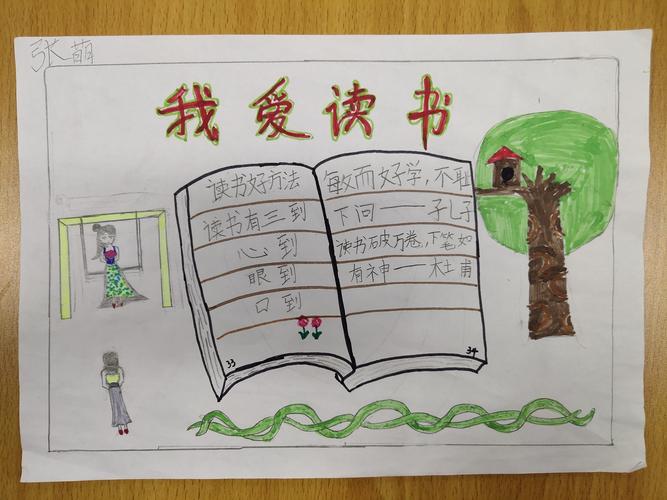 张萌
我爱读书
读书好方法
读书有三到
心到
眼到
口到
33
敏而好学,不耻
下问——孔子
读书破万卷,下笔如
有神——杜甫
34